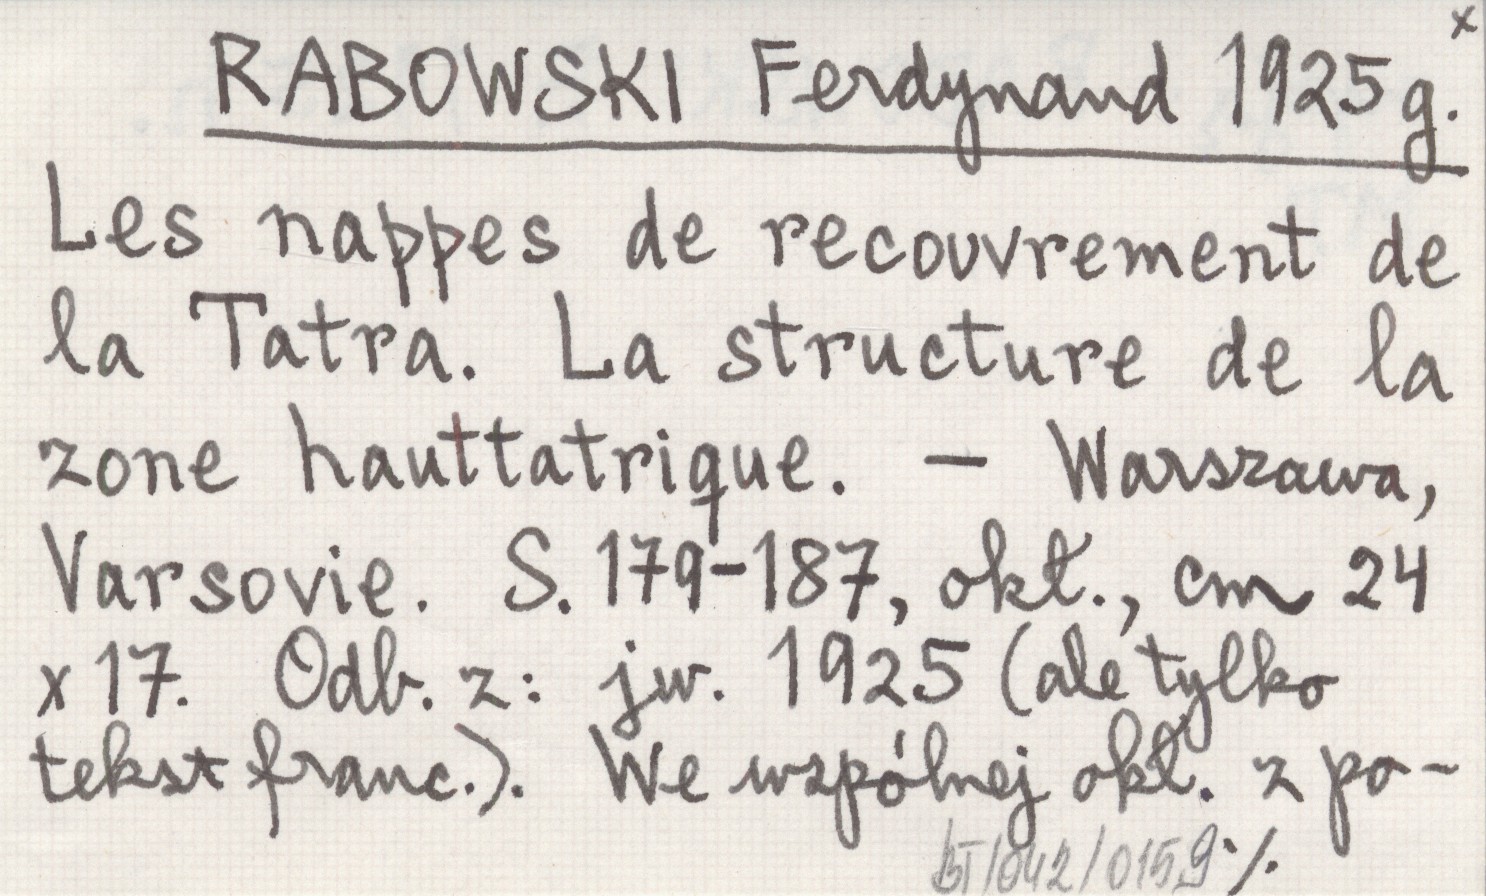 x
RABOWSKI Ferdynand 1925 g.
Les nappes de recouvrement de
la Tatra. La structure de la
zone hauttatrique. – Warszawa,
Varsovie. S. 179-187, okł., cm 24
x 17. Odb. z: jw. 1925 (ale tylko
tekst franc.). We wspólnej okł. z po-
BT/042/0159 ·/.